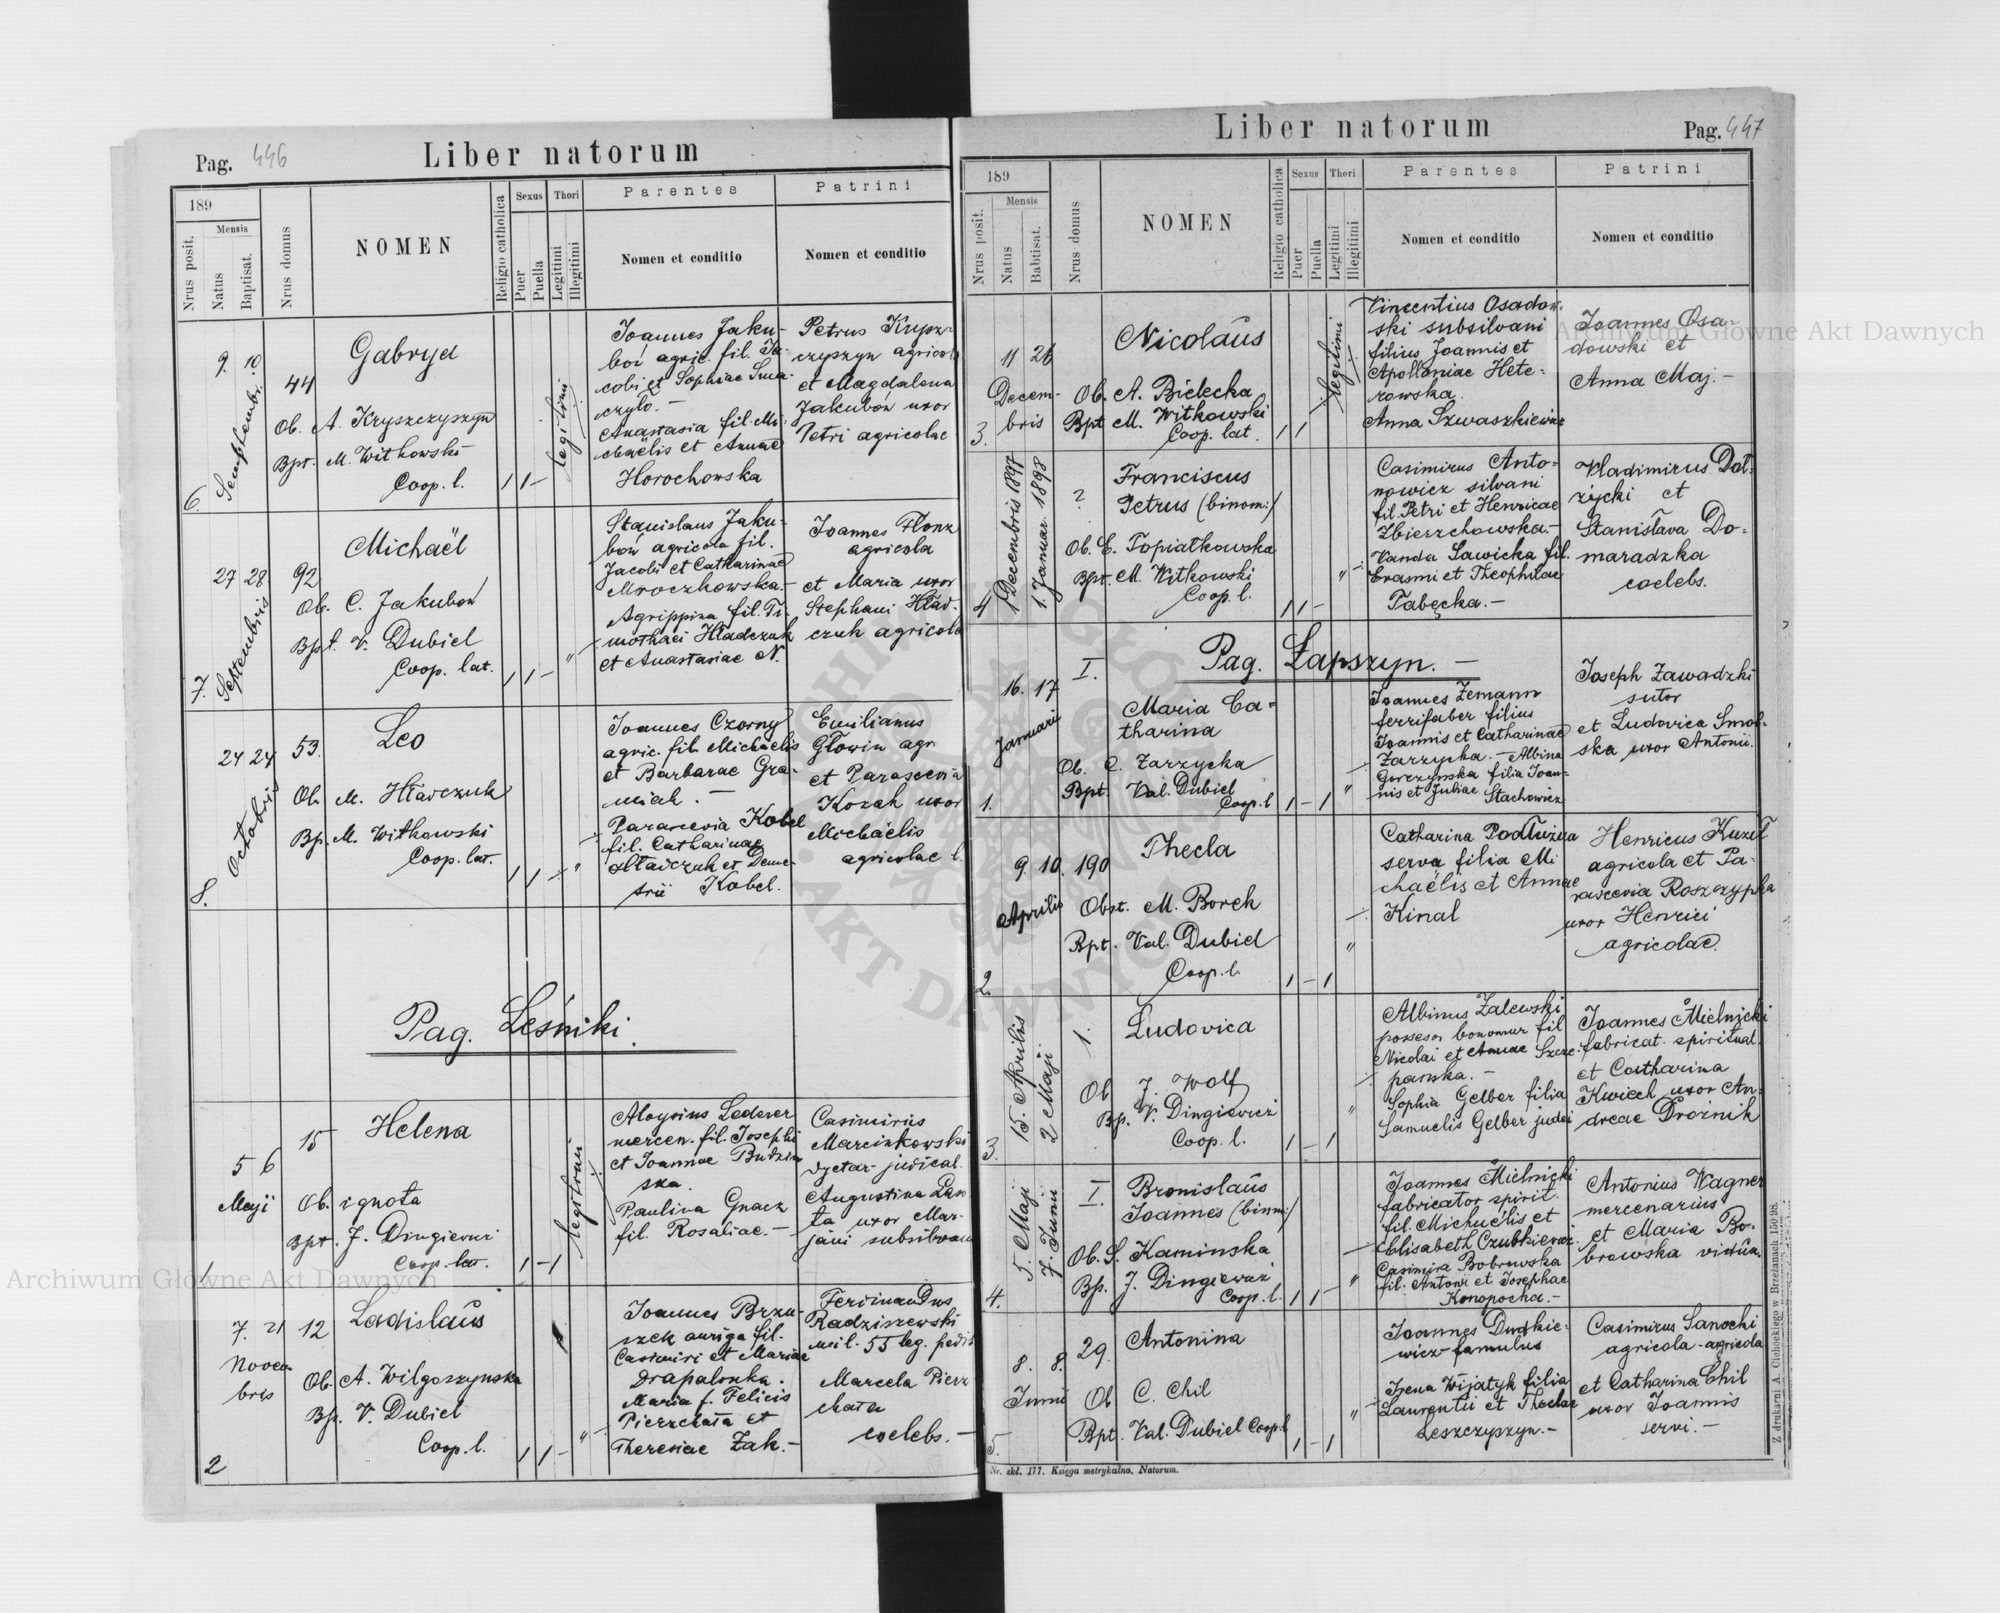 Pag. 446
Liber natorum
189
Mensis
Nrus posit.
Natus
Baptisat.
Nrus domus
NOMEN
Religio catholica
Sexus
Puer
Puella
Thori
Legitimi
Illegitimi
Parentes
Nomen et conditio
Patrini
Nomen et conditio
6.
9. 10.
Septembr.
44
Gabryel
Ob. A. Kryszczyszyn
Bpt. M. Witkowski
Coop. l.
1 1 -
legitimi
Joannes Jaku-
bów agric. fil. Ja-
cobi et Sophiae Sma-
czylo. -
Anastasia fil. Mi-
chaëlis et Annae
Horochowska
Petrus Krysz-
czyszyn agricola
et Magdalena
Jakubów uxor
Petri agricolae
7.
27 28.
Septembris
92
Michaël
Ob. C. Jakubów
Bpt. V. Dubiel
Coop. lat.
1 1 -
"
Stanislaus Jaku-
bów agricola fil.
Jacobi et Catharinae
Mroczkowska. -
Agrippina fil. Ti-
mothaei Hładczuk
et Anastasiae N.
Joannes Flonz
agricola
et Maria uxor
Stephani Hład-
czuk agricola
8.
24 24
Octobris
53.
Leo
Ob. M. Hładczuk
Bp. M. Witkowski
Coop. lat.
1 1 -
"
Joannes Czorny
agric. fil. Michaelis
et Barbarae Gra-
miak. -
Parascevia Kobel
fil. Catharinae
Hładczuk et Deme-
trii Kobel.
Emilianus
Głowin agr
et Parascevia
Kozak uxor
Michaëlis
agricolae l.
Pag. Leśniki.
1
5 6
Maji
15
Helena
Ob. ignota
Bpt. J. Dingiewicz
Coop. lat.
1 - 1
legitimi
Aloysius Lederer
mercen. fil. Josephi
et Joannae Budzin
ska.
Paulina Gnacz
fil. Rosaliae. -
Casimirus
Marcinkowski
djetar judical.
Augustina Laso
ta uxor Mar-
jani subsilvani
2
7. 21
Novem
bris
12
Ladislaus
Ob. A. Wilgoszynska
Bp. V. Dubiel
Coop. l.
1 1 -
"
Joannes Brzu-
szek auriga fil.
Casimiri et Mariae
Drapalonka.
Maria f. Felicis
Pierzchała et
Theresiae Żak. -
Ferdinandus
Radziszewski
mil. 55 leg. pedit
Marcela Pierz
chała
coelebs. -
Liber natorum
Pag. 447
189
Mensis
Nrus posit.
Natus
Babtisat.
Nrus domus
NOMEN
Religio catholica
Sexus
Puer
Puella
Thori
Legitimi
Illegitimi
Parentes
Nomen et conditio
Patrini
Nomen et conditio
3.
11 26
Decem-
bris
Nicolaus
Ob. A. Bielecka
Bpt M. Witkowski
Coop. lat.
1 1
legitimi
Vincentius Osadow-
ski subsilvani
filius Joannis et
Apolloniae Hete-
rowska.
Anna Szwaszkiewicz
Joannes Osa-
dowski et
Anna Maj. -
4
1 Decembris 1897
1. Januar. 1898
?
Franciscus
Petrus (binom:)
Ob. E. Topiatkowska
Bpt M. Witkowski
Coop. l.
1 1 -
"
Casimirus Anto-
nowicz silvani
fil. Petri et Henricae
Zbierzchowska. -
Vanda Sawicka fil.
Erasmi et Theophilae
Tabęcka. -
Vladimirus Doł-
życki et
Stanisława Do-
maradzka
coelebs.
Pag. Łapszyn. -
1.
16. 17
Januarii
I.
Maria Ca-
tharina
Ob. C. Zarzycka
Bpt. Val. Dubiel
Coop. l
1 - 1
"
Joannes Zemann
ferrifaber filius
Joannis et Catharinae
Zarzycka. - Albina
Gorczynska filia Joan-
nis et Juliae Stachowicz
Joseph Zawadzki
sutor
et Ludovica Smol-
ska uxor Antonii.
2.
9. 10.
Aprilis
190
Thecla
Obst. M. Borek
Bpt. Val. Dubiel
Coop. l.
1 - 1
"
Catharina Podłużna
serva filia Mi
chaëlis et Annae
Kinal
Henricus Kuzil
agricola et Pa-
rascevia Roszczypka
uxor Henrici
agricolae.
3.
15. Aprilis
2 Maji
1.
Ludovica
Ob J. Wolf
Bp. V. Dingiewicz
Coop. l.
1 - 1
"
Albinus Zalewski
possesor bonorum fil
Nicolai et Annae Szcze-
pańska. -
Sophia Gelber filia
Samuelis Gelber judei
Joannes Mielnicki
fabricat. spiritual.
et Catharina
Kwiech uxor An-
dreae Droźnik
4.
5. Maji
7. Junii
I.
Bronislaus
Joannes (binm:)
Ob. S. Kaminska
Bp. J. Dingiewicz
Coop. l.
1 1 -
"
Joannes Mielnicki
fabricator spirit.
fil. Michaëlis et
Elisabeth Czubkiewicz.
Casimira Bobrowska
fil. Antoni et Josephae
Konopacka. -
Antonius Wagner
mercenarius
et Maria Bo-
browska vidua.
5.
8. 8.
Junii
29.
Antonina
Ob C. Chil
Bpt. Val. Dubiel Coop. l
1 - 1
"
Joannes Dudkie-
wicz famulus
Irena Wijatyk filia
Laurentii et Theclae
Leszczyszyn. -
Casimirus Sanocki
agricola - agricola
et Catharina Chil
uxor Joannis
servi. -
Nr. skł. 177. Księga metrykalna, Natorum.
Z drukarni A. Cichockiego w Brzeżanach 150/98.
Archiwum Główne Akt Dawnych
Archiwum Główne Akt Dawnych